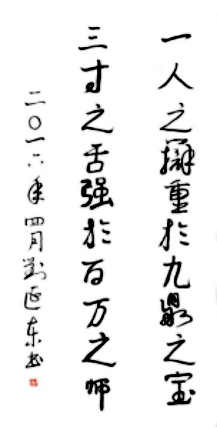 一人之辩重於九鼎之宝
三寸之舌强於百万之师
二〇一六年四月刘延东书